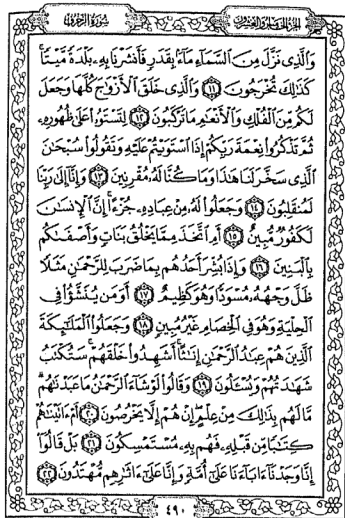 سورة الزخرف
الجزء الخامس والعشرون
وَالَّذِي نَزَّلَ مِنَ السَّمَاءِ مَاءً بِقَدَرٍ فَأَنشَرْنَا بِهِ بَلْدَةً مَّيْتًا
كَذَٰلِكَ تُخْرَجُونَ ﴿١١﴾ وَالَّذِي خَلَقَ الْأَزْوَاجَ كُلَّهَا وَجَعَلَ
لَكُم مِّنَ الْفُلْكِ وَالْأَنْعَامِ مَا تَرْكَبُونَ ﴿١٢﴾ لِتَسْتَوُوا عَلَىٰ ظُهُورِهِ
ثُمَّ تَذْكُرُوا نِعْمَةَ رَبِّكُمْ إِذَا اسْتَوَيْتُمْ عَلَيْهِ وَتَقُولُوا سُبْحَانَ
الَّذِي سَخَّرَ لَنَا هَٰذَا وَمَا كُنَّا لَهُ مُقْرِنِينَ ﴿١٣﴾ وَإِنَّا إِلَىٰ رَبِّنَا
لَمُنقَلِبُونَ ﴿١٤﴾ وَجَعَلُوا لَهُ مِنْ عِبَادِهِ جُزْءًا إِنَّ الْإِنسَانَ
لَكَفُورٌ مُّبِينٌ ﴿١٥﴾ أَمِ اتَّخَذَ مِمَّا يَخْلُقُ بَنَاتٍ وَأَصْفَاكُم
بِالْبَنِينَ ﴿١٦﴾ وَإِذَا بُشِّرَ أَحَدُهُم بِمَا ضَرَبَ لِلرَّحْمَٰنِ مَثَلًا
ظَلَّ وَجْهُهُ مُسْوَدًّا وَهُوَ كَظِيمٌ ﴿١٧﴾ أَوَمَن يُنَشَّأُ فِي
الْحِلْيَةِ وَهُوَ فِي الْخِصَامِ غَيْرُ مُبِينٍ ﴿١٨﴾ وَجَعَلُوا الْمَلَائِكَةَ
الَّذِينَ هُمْ عِبَادُ الرَّحْمَٰنِ إِنَاثًا أَشَهِدُوا خَلْقَهُمْ سَتُكْتَبُ
شَهَادَتُهُمْ وَيُسْأَلُونَ ﴿١٩﴾ وَقَالُوا لَوْ شَاءَ الرَّحْمَٰنُ مَا عَبَدْنَاهُم
مَّا لَهُم بِذَٰلِكَ مِنْ عِلْمٍ إِنْ هُمْ إِلَّا يَخْرُصُونَ ﴿٢٠﴾ أَمْ آتَيْنَاهُمْ
كِتَابًا مِّن قَبْلِهِ فَهُم بِهِ مُسْتَمْسِكُونَ ﴿٢١﴾ بَلْ قَالُوا
إِنَّا وَجَدْنَا آبَاءَنَا عَلَىٰ أُمَّةٍ وَإِنَّا عَلَىٰ آثَارِهِم مُّهْتَدُونَ ﴿٢٢﴾
٤٩٠